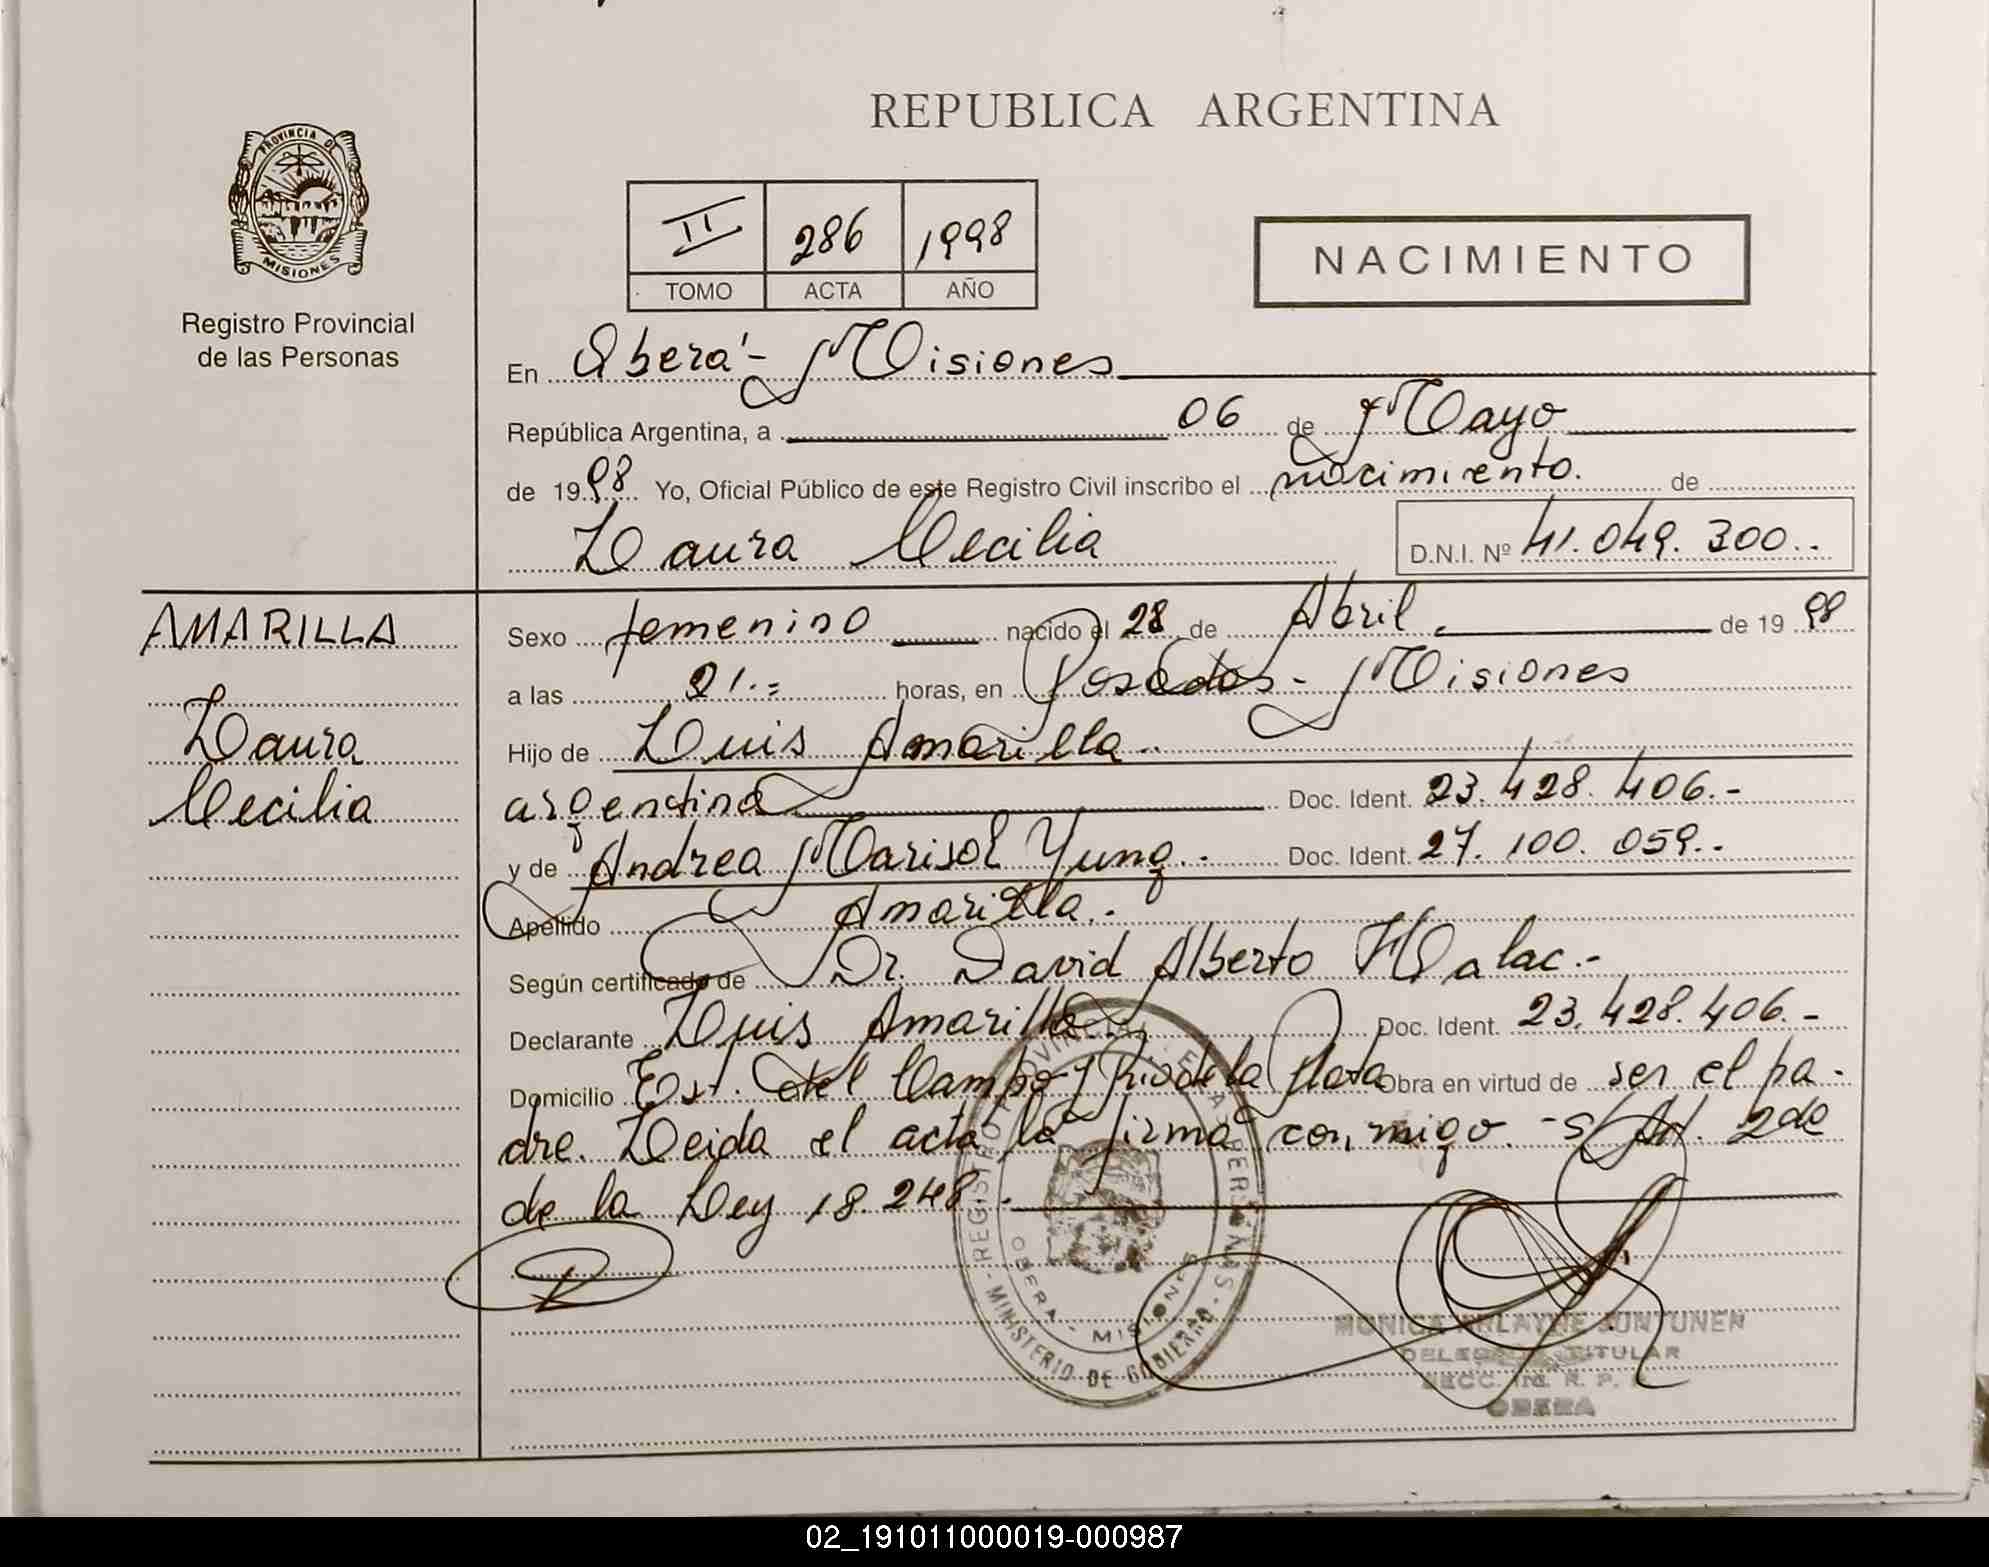 REPUBLICA ARGENTINA
PROVINCIA DE
MISIONES
Registro Provincial
de las Personas
II 286 1998
TOMO ACTA AÑO
NACIMIENTO
En Oberá - Misiones
República Argentina, a 06 de Mayo
de 1998 Yo, Oficial Público de este Registro Civil inscribo el nacimiento. de
Laura Cecilia D.N.I. Nº 41.049.300.-
AMARILLA
Laura
Cecilia
Sexo femenino nacido el 28 de Abril de 1998
a las 21.= horas, en Posadas - Misiones
Hijo de Luis Amarilla.-
argentino Doc. Ident. 23.428.406.-
y de Andrea Marisol Yung.- Doc. Ident. 27.100.059.-
Apellido Amarilla.-
Según certificado de Dr. David Alberto Halac.-
Declarante Luis Amarilla Doc. Ident. 23.428.406.-
Domicilio Ext. del Campo y Rio de la Plata Obra en virtud de ser el pa-
dre. Leida el acta la firma conmigo. - s/Art. 2do
de la Ley 18.248.-
REGISTRO PROVINCIAL DE LAS PERSONAS
OBERA - MISIONES
MINISTERIO DE GOBIERNO
MONICA JUNTUNEN
TITULAR
SECC. R. P.
OBERA
02_191011000019-000987